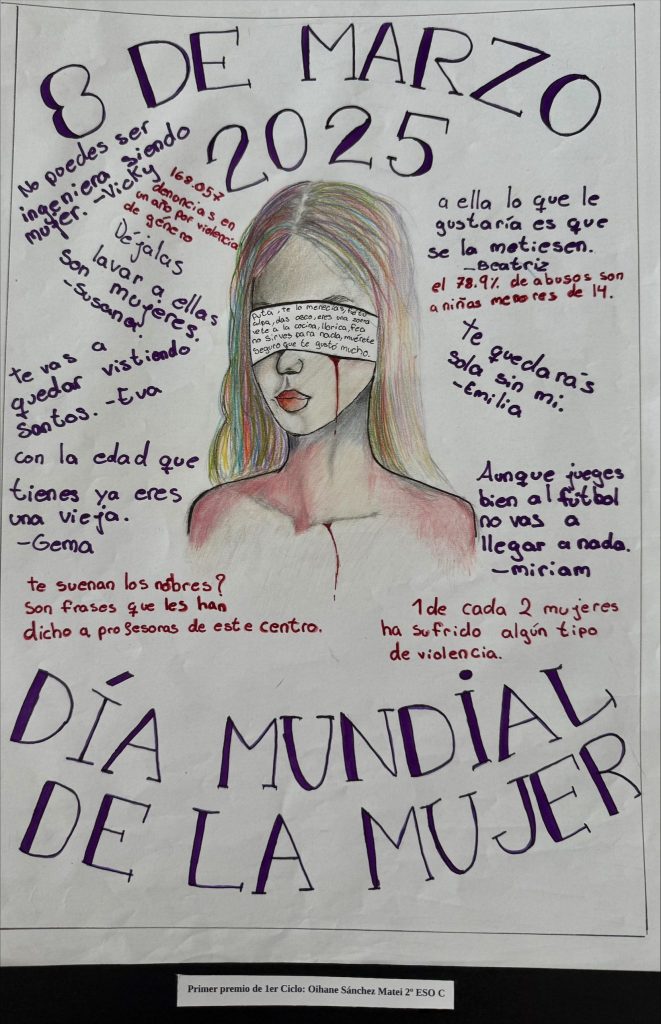 8 DE MARZO
2025
No puedes ser
ingeniera siendo
mujer. -Vicky
168.057
denuncias en
un año por violencia
de género
Déjalas
lavar a ellas
son mujeres.
-Susana
te vas a
quedar vistiendo
Santos. -Eva
con la edad que
tienes ya eres
una vieja.
-Gema
a ella lo que le
gustaría es que
se la metiesen.
-Beatriz
el 78.9% de abusos son
a niñas menores de 14.
te quedarás
sola sin mi.
-Emilia
Aunque jueges
bien al fútbol
no vas a
llegar a nada.
-miriam
Puta, te lo merecías, es tu
culpa, das asco, eres una zorra
vete a la cocina, llorica, fea
no sirves para nada, muérete
seguro que te gustó mucho.
te suenan los nobres?
Son frases que les han
dicho a profesoras de este centro.
1 de cada 2 mujeres
ha sufrido algún tipo
de violencia.
DÍA MUNDIAL
DE LA MUJER
Primer premio de 1er Ciclo: Oihane Sánchez Matei 2º ESO C